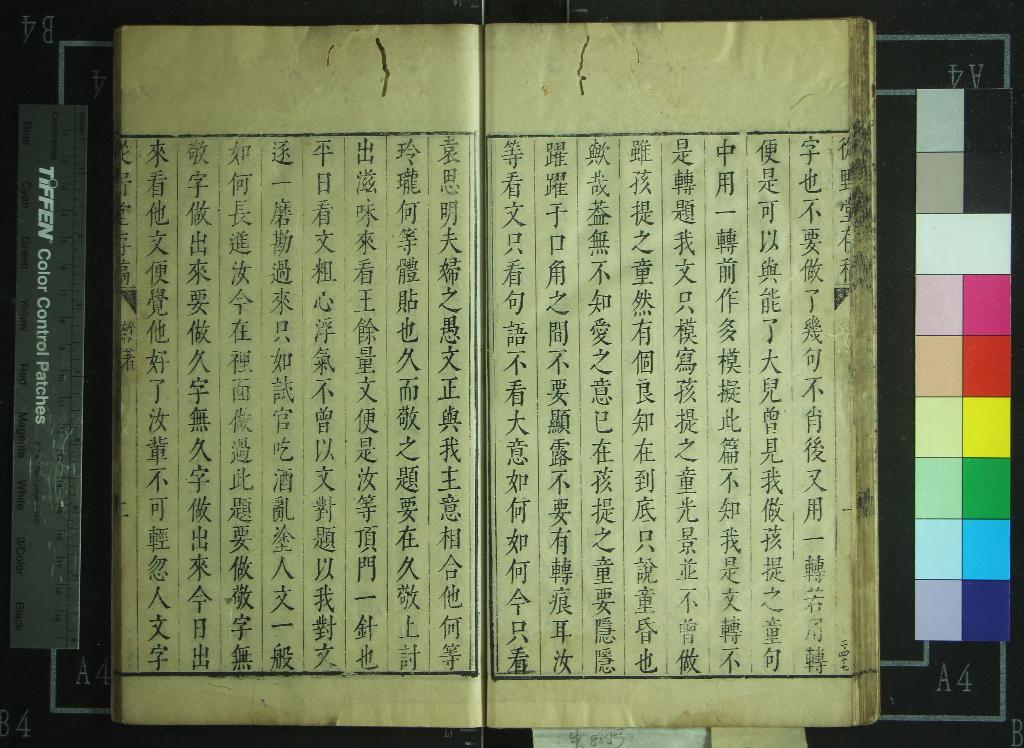 從野堂存稿
字也不要做了幾句不肯後又用一轉若用轉
便是可以與能了大兒曾見我做孩提之童句
中用一轉前作多模擬此篇不知我是文轉不
是轉題我文只模寫孩提之童光景並不曾做
雖孩提之童然有個良知在到底只說童昏也
歟哉葢無不知愛之意已在孩提之童要隱隱
躍躍于口角之間不要顯露不要有轉痕耳汝
等看文只看句語不看大意如何如何今只看
袁思明夫婦之愚文正與我主意相合他何等
玲瓏何等體貼也久而敬之題要在久敬上討
出滋味來看王餘量文便是汝等頂門一針也
平日看文粗心浮氣不曾以文對題以我對文
逐一磨勘過來只如試官吃酒亂塗人文一般
如何長進汝今在裡面做過此題要做敬字無
敬字做出來要做久字無久字做出來今日出
來看他文便覺他好了汝輩不可輕忽人文字
從野堂存稿 雜著 上
TIFFEN Color Control Patches
Blue Cyan Green Yellow Red Magenta White 3/Color Black
B4
A4
A4
A4
B4